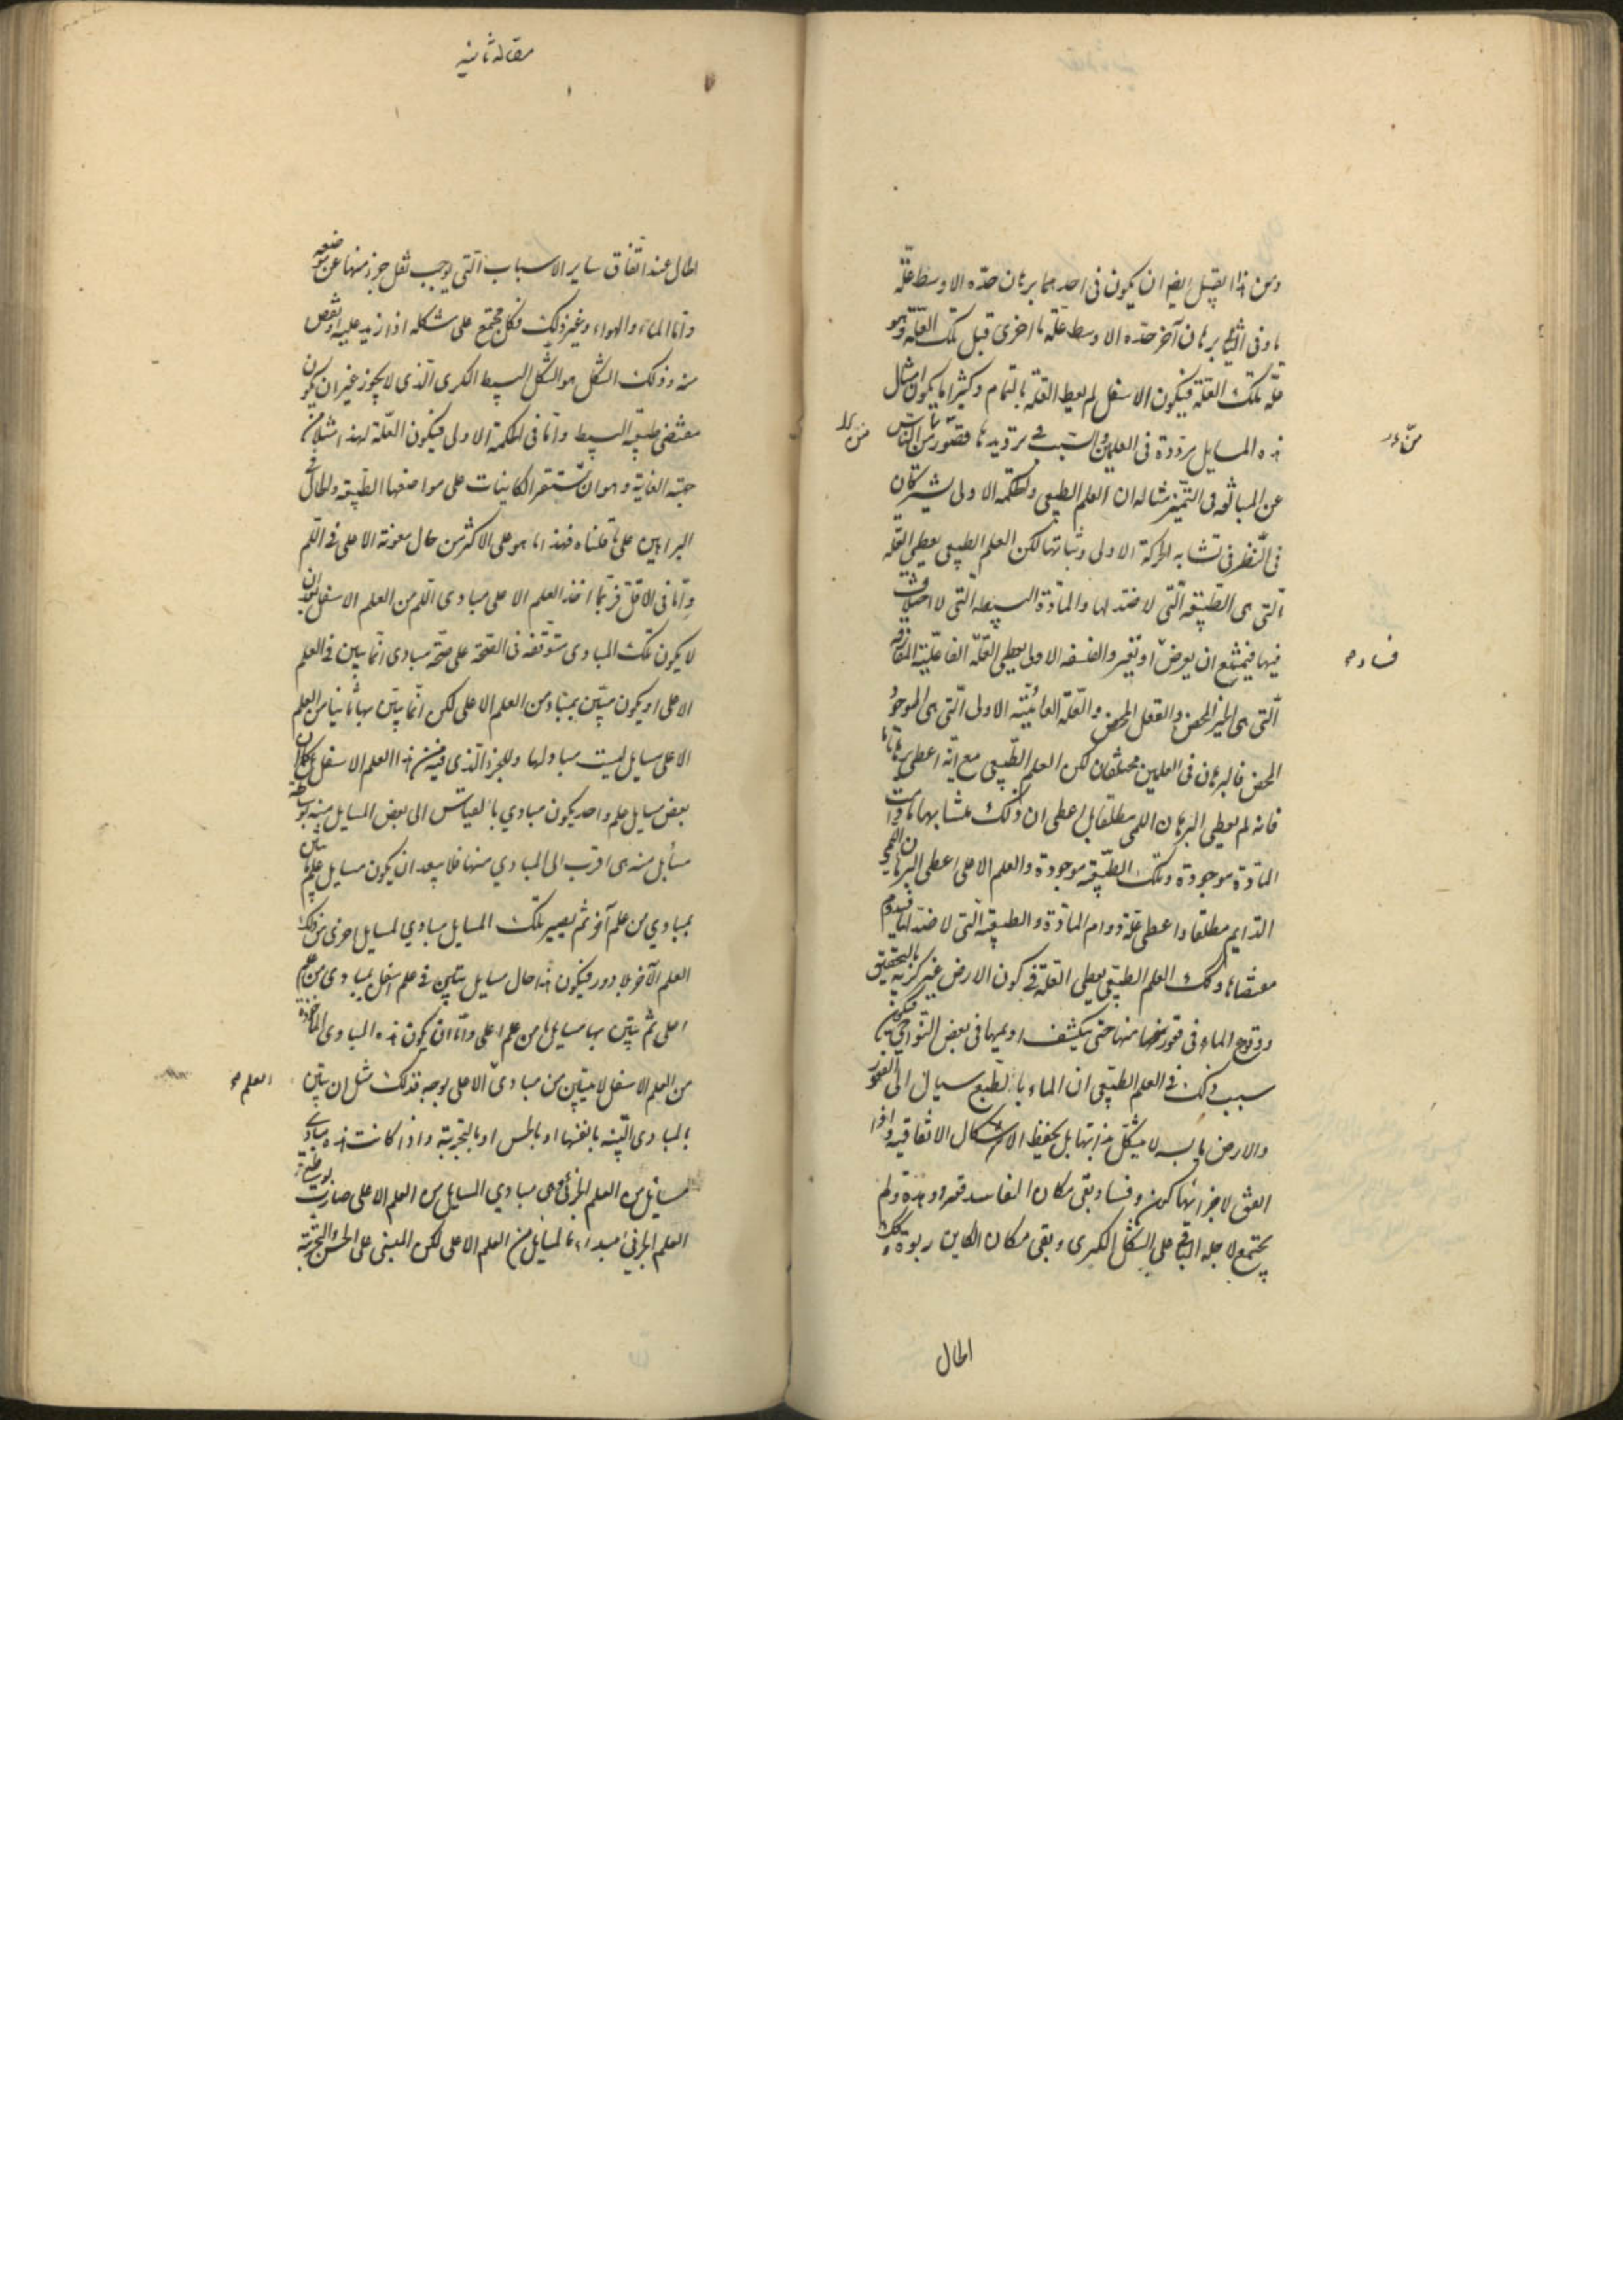 ومن هذا القبيل ايضا ان يكون فى احدهما برهان حدّه الاوسط علّة
ما وفى الثانى برهان آخر حدّه الاوسط علّة ما اخرى قبل تلك العلّة وهو
علّة لتلك العلّة فيكون الاسفل لم يعط العلّة بالتمام وكثيرا ما يكون امثال
هذه المسايل مردّدة فى العلمين والسبب فى ترديدها قصور من الناس
عن المبالغه فى التميّز مثاله ان العلم الطبيعى والحكمه الاولى يشتركان
فى النظر فى تشابه الحركة الاولى وثباتها لكن العلم الطبيعى يعطى العلّه
الّتى هى الطبيعة التى لا ضدّ لها والمادّة البسيطه التى لا اختلاف
فيها فيمتنع ان يعرض او تغير والفلسفه الاولى يعطى العلّة الفاعليّة المفارقه
الّتى هى الخير المحض والعقل المحض والعلّة الغائيّة الاولى الّتى هى الوجود
المحض فالبرهان فى العلمين مختلفان لكن العلم الطبيعى مع انّه اعطى برهانا ما
فانه لم يعطى البرهان اللمى مطلقا بل اعطى ان ذلك متشابه ما دامت
المادّة موجودة وتلك الطبيعة موجودة والعلم الاعلى اعطى البرهان اللمى
الدّايم مطلقا واعطى علّة دوام المادّة والطبيعة الّتى لا ضدّ لها فيدوم
مقتضاها وكك العلم الطبيعى يعطى العلّة فى كون الارض غير كرّية بالتحقيق
ووقوع الماء فى قعور منها حتى ينكشف اديمها فى بعض النواحى فيكون
سبب ذلك فى العلم الطبيعى ان الماء بالطبع سيال الى الغور
والارض يابسه لا يتشكل بذاتها بل يحفظ الاشكال الاتفاقيه واذا
اتفق لاجزائها كون وفساد بقى مكان الفاسد قعر او وهدة ولم
يجتمع لاجله الباقى على الشكل الكرى وبقى مكان الكاين ربوة وكك
الحال
من
فساد صح
مقاله ثانيه
الحال عند اتّفاق ساير الاسباب الّتى يوجب ثقل جزء منها عن موضعه
وامّا الماء والهواء وغير ذلك فكل مجتمع على شكله اذا زيد عليه او نقص
منه وذلك الشكل هو الشكل البسيط الكرى الّذى لا يجوز غير ان يكون
مقتضى طبيعة البسيط وامّا فى الحكمة الاولى فيكون العلّة لهذا مثلا من
جهة الغاية وهو ان يستقر الكاينات على مواضعها الطبيعة والحال فى
البراهين على ما قلناه فهذا انما هو على الاكثر من حال معونة الاعلى فى اللّم
وامّا فى الاقل فربّما اخذ العلم الاعلى مبادى اللّم من العلم الاسفل بعد ان
لا يكون تلك المبادى متوقّفه فى الصحّة على صحّة مبادى انّما يتبين فى العلم
الاعلى او يكون يتبيّن بمبادى من العلم الاعلى لكن انّما يتبيّن بها ثانيا من العلم
الاعلى مسايل ليست مبادلها وللجزء الّذى فيه من هذا العلم الاسفل كما ان
بعض مسايل علم واحد يكون مبادى بالقياس الى بعض المسايل منه بوساطة
مسايل منه هى اقرب الى المبادى منها فلا يبعد ان يكون مسايل علم ما يتبيّن
بمبادى من علم آخر ثم يصير تلك المسايل مبادى لمسايل اخرى من ذلك
العلم الآخر بلا دور فيكون هذا حال مسايل يتبيّن فى علم اسفل بمبادى من علم
اعلى ثم يتبيّن بها مسايل ما من علم اعلى وامّا ان يكون هذه المبادى الماخوذة
من العلم الاسفل لا يتبيّن من مبادى الاعلى بوجه فذلك مثل ان يتبيّن
بالمبادى البيّنه بانفسها او بالحس او بالتجربة واذا كانت هذه مبادى
مسايل من العلم الجزئى وهى مبادى المسايل من العلم الاعلى صارت بوساطة
العلم الجزئى مبداء ما لمسايل من العلم الاعلى لكن المبنى على الحس والتجربة
العلم صح